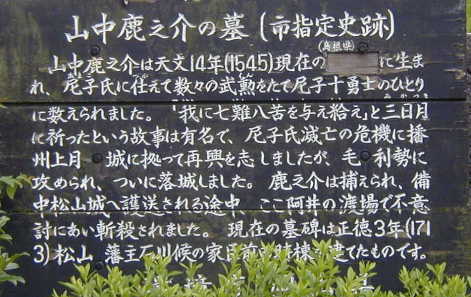 山中鹿之介の墓(市指定史跡)
(島根県)
山中鹿之介は天文14年(1545)現在の に生ま
れ、尼子氏に仕えて数々の武勲をたて尼子十勇士のひとり
に数えられました。「我に七難八苦を与え給え」と三日月
に祈ったという故事は有名で、尼子氏滅亡の危機に播
州上月 城に拠って再興を志しましたが、毛利勢に
攻められ、ついに落城しました。鹿之介は捕えられ、備
中松山城へ護送される途中 ここ阿井の渡場で不意
討にあい斬殺されました。現在の墓碑は正徳3年(171
3)松山 藩主石川候の家臣前 棟 建てたものです。